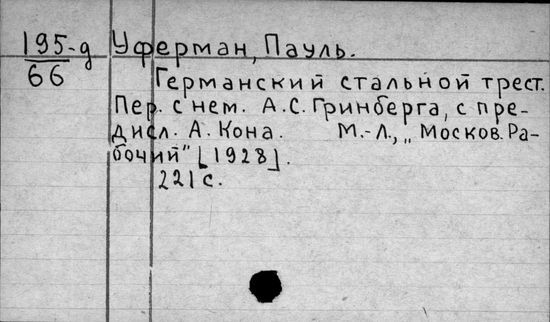 195-д Уферман, Пауль.
66 Германский стальной трест.
Пер. с нем. А.С. Гринберга, с пре-
дисл. А. Кона. М.-Л., „Москов. Ра-
бочий" [1928].
221 с.